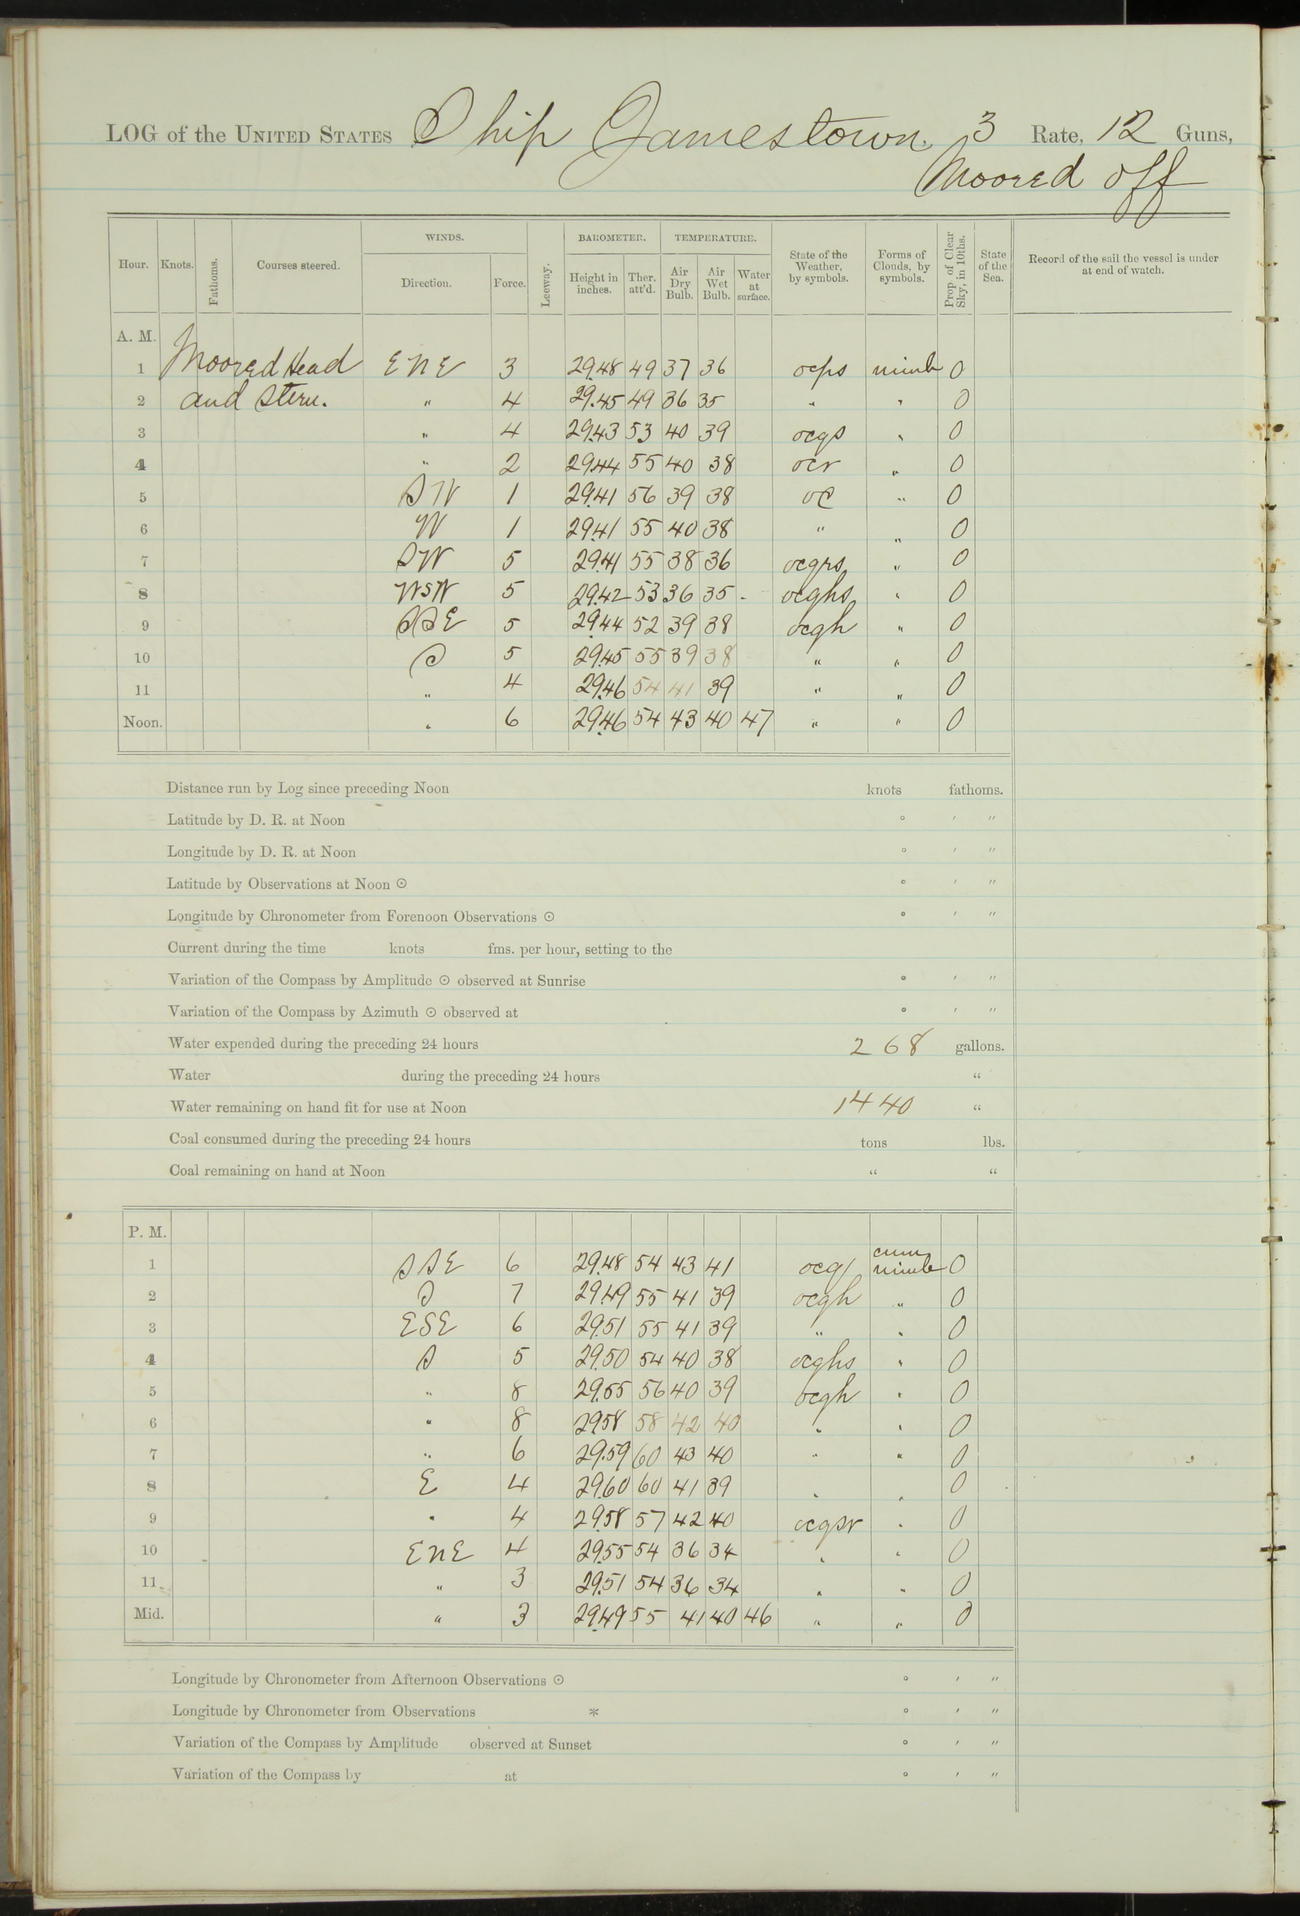 LOG of the UNITED STATES Ship Jamestown, 3 Rate, 12 Guns,
Moored off
Hour. Knots. Fathoms. Courses steered. WINDS. Direction. Force. Leeway. BAROMETER. Height in inches. Ther. att'd. TEMPERATURE. Air Dry Bulb. Air Wet Bulb. Water at surface. State of the Weather, by symbols. Forms of Clouds, by symbols. Prop of Clear Sky, in 10ths. State of the Sea. Record of the sail the vessel is under at end of watch.
A. M.
1 Moored Head ENE 3 29.48 49 37 36 ocps nimb 0
2 and Stern. " 4 29.45 49 36 35 " " 0
3 " 4 29.43 53 40 39 ocqs " 0
4 " 2 29.44 55 40 38 ocr " 0
5 SW 1 29.41 56 39 38 oc " 0
6 W 1 29.41 55 40 38 " " 0
7 SW 5 29.41 55 38 36 ocqrs " 0
8 WSW 5 29.42 53 36 35 ocqhs " 0
9 SSE 5 29.44 52 39 38 ocqh " 0
10 S 5 29.45 55 39 38 " " 0
11 " 4 29.46 54 41 39 " " 0
Noon. " 6 29.46 54 43 40 47 " " 0
Distance run by Log since preceding Noon knots fathoms.
Latitude by D. R. at Noon ° ′ ″
Longitude by D. R. at Noon ° ′ ″
Latitude by Observations at Noon ☉ ° ′ ″
Longitude by Chronometer from Forenoon Observations ☉ ° ′ ″
Current during the time knots fms. per hour, setting to the
Variation of the Compass by Amplitude ☉ observed at Sunrise ° ′ ″
Variation of the Compass by Azimuth ☉ observed at ° ′ ″
Water expended during the preceding 24 hours 268 gallons.
Water during the preceding 24 hours "
Water remaining on hand fit for use at Noon 1440 "
Coal consumed during the preceding 24 hours tons lbs.
Coal remaining on hand at Noon " "
P. M.
cum
1 SSE 6 29.48 54 43 41 ocq nimb 0
2 S 7 29.49 55 41 39 ocqh " 0
3 ESE 6 29.51 55 41 39 " " 0
4 S 5 29.50 54 40 38 ocqhs " 0
5 " 8 29.55 56 40 39 ocqh " 0
6 " 8 29.58 58 42 40 " " 0
7 " 6 29.59 60 43 40 " " 0
8 E 4 29.60 60 41 39 " " 0
9 " 4 29.58 57 42 40 ocqsr " 0
10 ENE 4 29.55 54 36 34 " " 0
11 " 3 29.51 54 36 34 " " 0
Mid. " 3 29.49 55 41 40 46 " " 0
Longitude by Chronometer from Afternoon Observations ☉ ° ′ ″
Longitude by Chronometer from Observations * ° ′ ″
Variation of the Compass by Amplitude observed at Sunset ° ′ ″
Variation of the Compass by at ° ′ ″